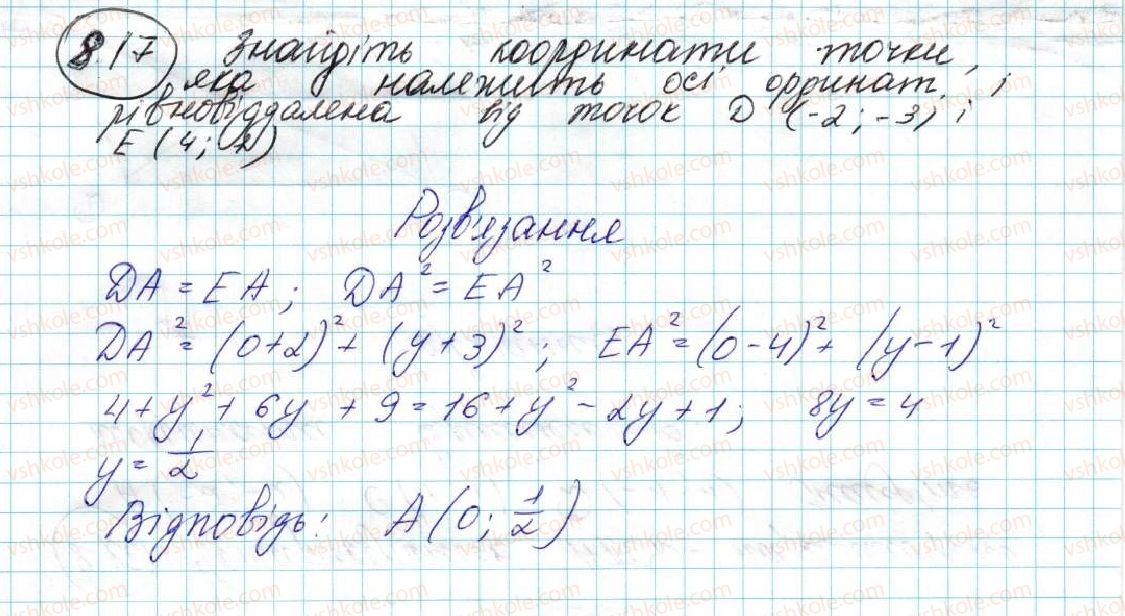 8.17 Знайдіть координати точки,
яка належить осі ординат і
рівновіддалена від точок D (-2; -3) і
E (4; 1)
Розв'язання
DA = EA; DA² = EA²
DA² = (0+2)² + (y+3)²; EA² = (0-4)² + (y-1)²
4 + y² + 6y + 9 = 16 + y² - 2y + 1; 8y = 4
y = 1/2
Відповідь: A (0; 1/2)